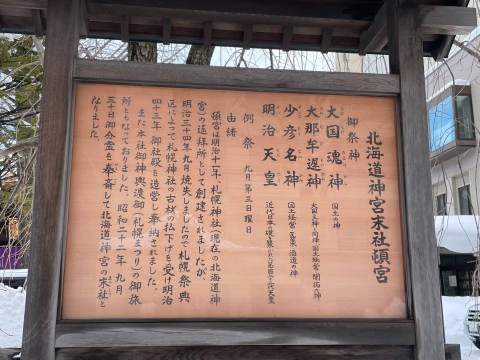 北海道神宮末社頓宮
御祭神
大国魂神 国土の神
大那牟遅神 大国主神と同神 国土経営・開拓の神
少彦名神 国土経営・医薬・酒造の神
明治天皇 近代日本の礎を築かれた第百二十二代天皇
例祭 九月第三日曜日
由緒
頓宮は明治十一年、札幌神社(現在の北海道神
宮)の遥拝所として創建されましたが、
明治三十四年九月焼失しましたので札幌祭典
区によって札幌神社の古材の払下げを受け明治
四十三年御社殿を造営し奉納されました。
また本社御神輿渡御(札幌まつり)の御旅
所ともなっております。昭和二十二年九月
三十日御分霊を奉斎して北海道神宮の末社と
なりました。